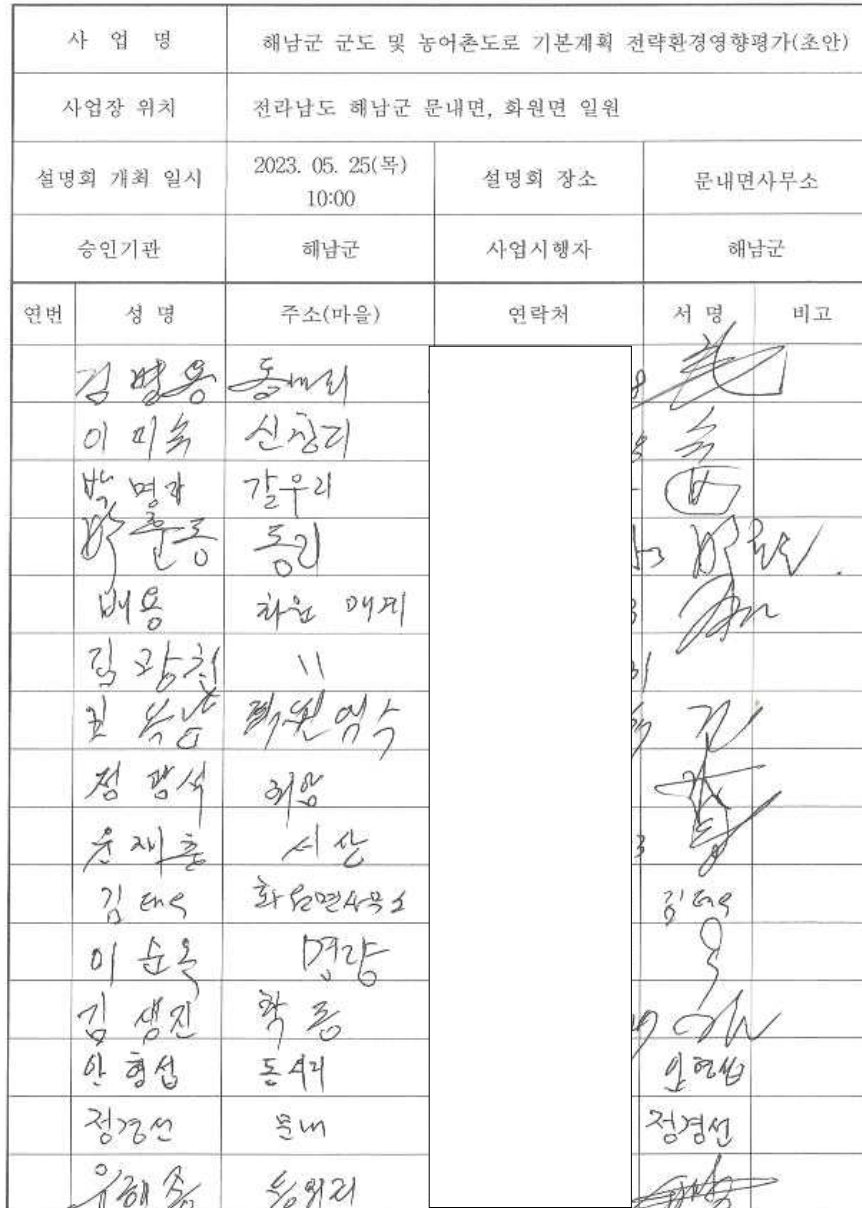 사 업 명 해남군 군도 및 농어촌도로 기본계획 전략환경영향평가(초안)
사업장 위치 전라남도 해남군 문내면, 화원면 일원
설명회 개최 일시 2023. 05. 25(목) 10:00 설명회 장소 문내면사무소
승인기관 해남군 사업시행자 해남군
연번 성 명 주소(마을) 연락처 서 명 비고
김병용 동외리
이미숙 신창리 숙
박명자 갈우리 박
박훈동 동리
배용 화원 매계
김광천 〃
김복남 화원영수 김
정광석
윤재훈 서산
김태오 화원면사무소 김태오
이순옥 명량 옥
김생진 학동
안형섭 동서리 안형섭
정경선 문내 정경선
유해종 동외리